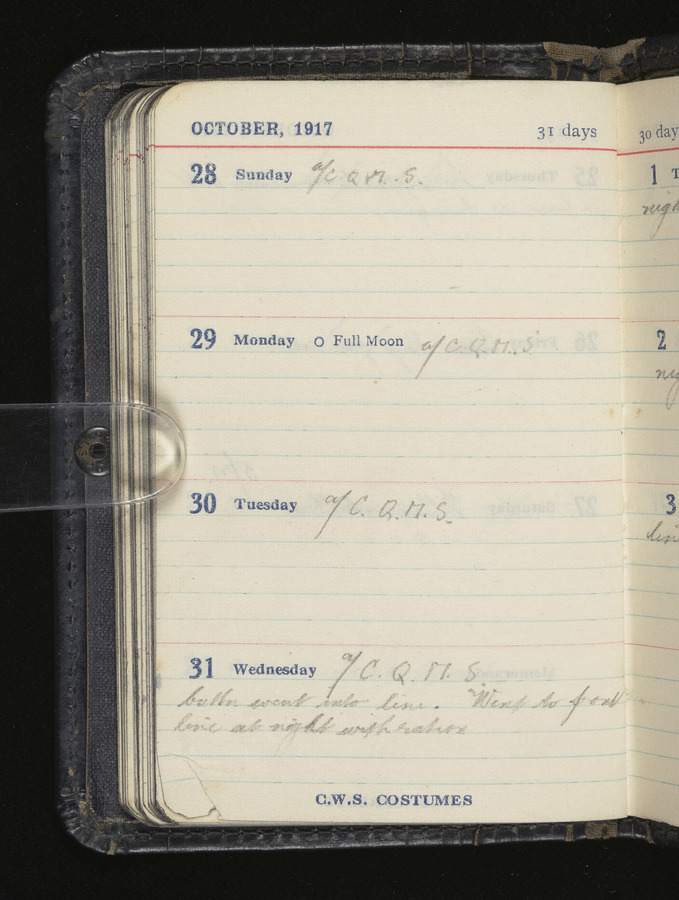 OCTOBER, 1917 31 days
28 Sunday a/C. Q. M. S.
29 Monday O Full Moon a/C. Q. M. S.
30 Tuesday a/C. Q. M. S.
31 Wednesday a/C. Q. M. S.
battn went into line. Went to front
line at night with rations
C.W.S. COSTUMES
30 day
1 T
nigh
2
nig
3
lin